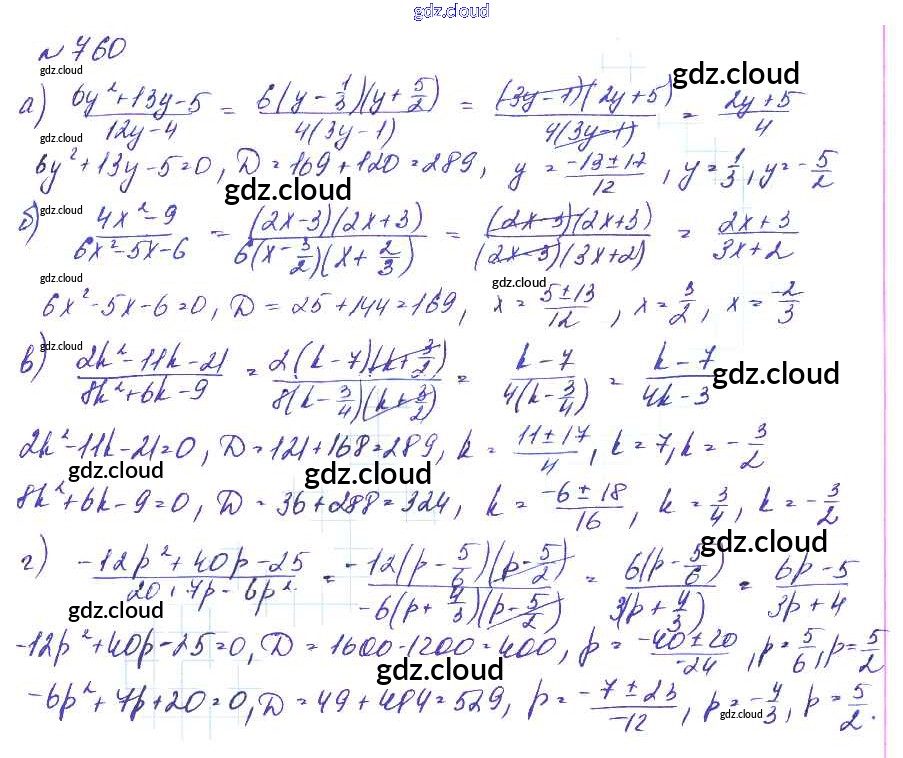 gdz.cloud
gdz.cloud
№760
gdz.cloud gdz.cloud
а) (6y²+13y-5)/(12y-4) = 6(y-1/3)(y+5/2)/4(3y-1) = (3y-1)(2y+5)/4(3y-1) = (2y+5)/4
gdz.cloud
6y²+13y-5=0, D=169+120=289, y = (-13±17)/12, y=1/3, y=-5/2
gdz.cloud gdz.cloud
б) (4x²-9)/(6x²-5x-6) = (2x-3)(2x+3)/6(x-3/2)(x+2/3) = (2x-3)(2x+3)/(2x-3)(3x+2) = (2x+3)/(3x+2)
gdz.cloud gdz.cloud
6x²-5x-6=0, D=25+144=169, x = (5±13)/12, x=3/2, x=-2/3
gdz.cloud
в) (2k²-11k-21)/(8k²+6k-9) = 2(k-7)(k+3/2)/8(k-3/4)(k+3/2) = (k-7)/4(k-3/4) = (k-7)/(4k-3)
gdz.cloud
2k²-11k-21=0, D=121+168=289, k = (11±17)/4, k=7, k=-3/2
gdz.cloud gdz.cloud
8k²+6k-9=0, D=36+288=324, k = (-6±18)/16, k=3/4, k=-3/2
gdz.cloud
г) (-12p²+40p-25)/(20+7p-6p²) = -12(p-5/6)(p-5/2)/-6(p+4/3)(p-5/2) = 6(p-5/6)/3(p+4/3) = (6p-5)/(3p+4)
gdz.cloud
-12p²+40p-25=0, D=1600-1200=400, p = (-40±20)/-24, p=5/6, p=5/2
gdz.cloud
-6p²+7p+20=0, D=49+484=529, p = (-7±23)/-12, p=-4/3, p=5/2.
gdz.cloud